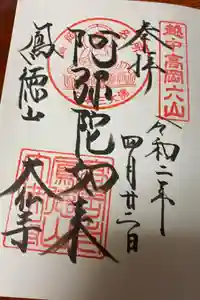 越中高岡六山
奉拝
令和二年
四月廿二日
阿弥陀如来
鳳徳山
大仏寺